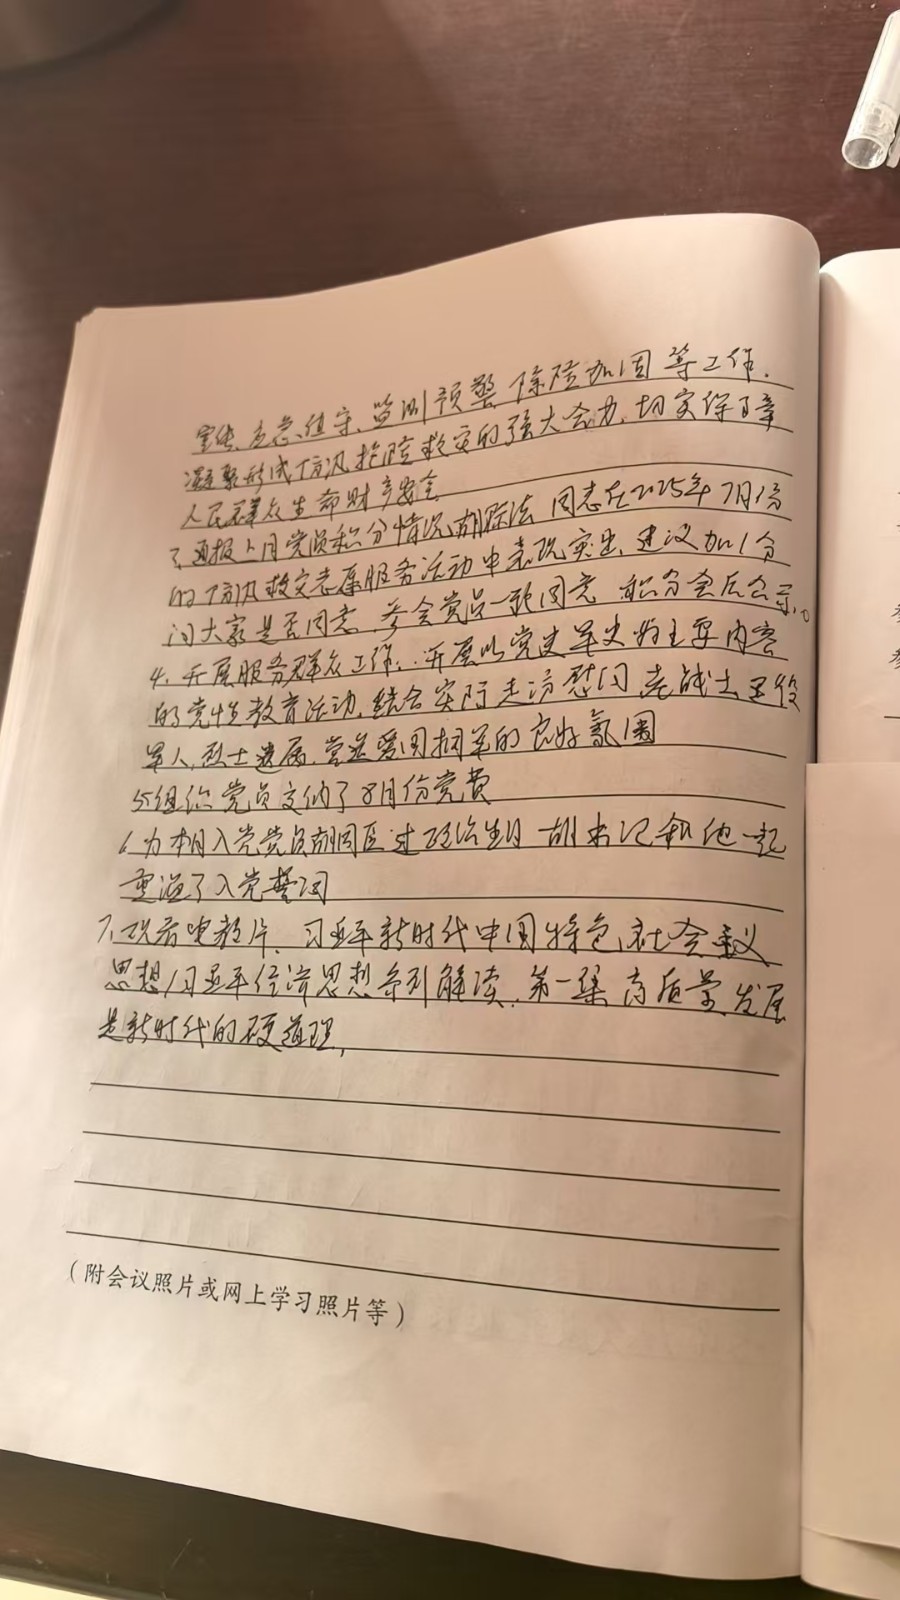 宣传、应急值守、监测预警、除险加固等工作.
凝聚形成防汛抢险救灾的强大合力,切实保障
人民群众生命财产安全
3、通报上月党员积分情况,胡 同志在2025年7月份
的防汛救灾志愿服务活动中表现突出,建议加1分
问大家是否同意,参会党员一致同意 积分会后公示。
4、开展服务群众工作:开展以党建军史为主要内容
的党性教育活动,结合实际走访慰问,老战士退役
军人,烈士遗属,营造爱国拥军的良好氛围
5组织党员交纳了8月份党费
6为本月入党党员胡同 过政治生日 胡书记和他一起
重温了入党誓词
7、观看电教片,习近平新时代中国特色社会主义
思想/习近平经济思想系列解读,第一集 高质量发展
是新时代的硬道理,
(附会议照片或网上学习照片等)